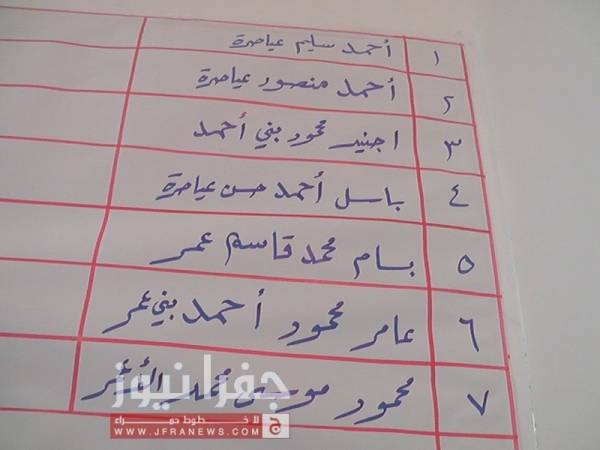 ١ أحمد سليم عياصرة
٢ أحمد منصور عياصرة
٣ اجنيد محمود بني أحمد
٤ باسل أحمد حسن عياصرة
٥ بسام محمد قاسم عمر
٦ عامر محمود أحمد بني عمر
٧ محمود موسى محمد
جفرا نيوز
لا خطوط حمراء
WWW.JFRANEWS.COM